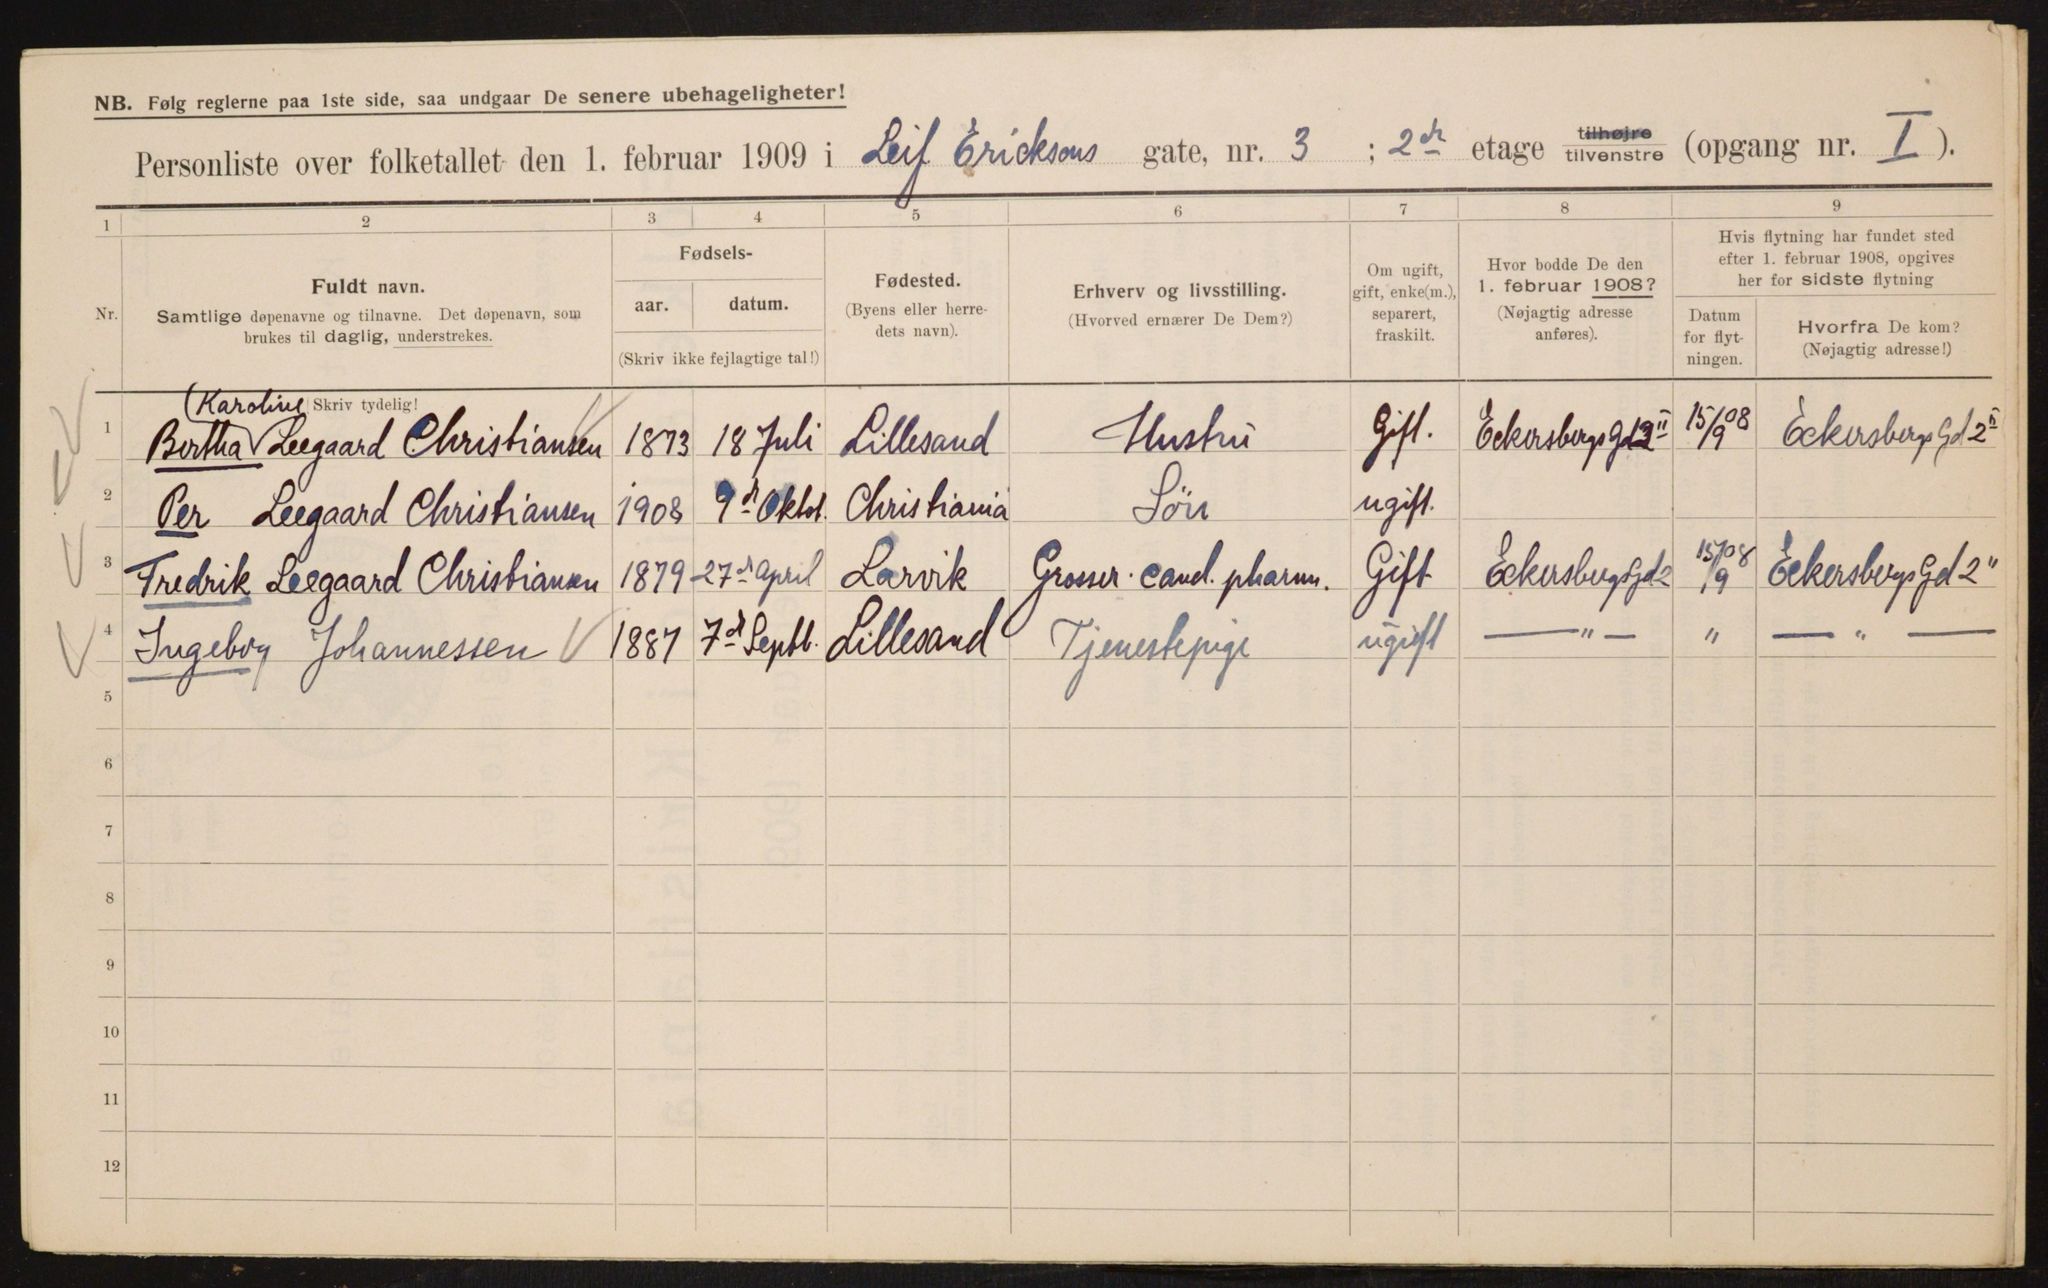 NB. Følg reglerne paa 1ste side, saa undgaar De senere ubehageligheter!
Personliste over folketallet den 1. februar 1909 i Leif Ericksons gate, nr. 3 ; 2den etage tilhøjre tilvenstre (opgang nr. I ).
1 2 3 4 5 6 7 8 9
Nr.
Fuldt navn.
Samtlige døpenavne og tilnavne. Det døpenavn, som
brukes til daglig, understrekes.
Fødsels-
aar. datum.
(Skriv ikke fejlagtige tal!)
Fødested.
(Byens eller herre-
dets navn).
Erhverv og livsstilling.
(Hvorved ernærer De Dem?)
Om ugift,
gift, enke(m.),
separert,
fraskilt.
Hvor bodde De den
1. februar 1908?
(Nøjagtig adresse
anføres).
Hvis flytning har fundet sted
efter 1. februar 1908, opgives
her for sidste flytning
Datum
for flyt-
ningen.
Hvorfra De kom?
(Nøjagtig adresse!)
Karoline Skriv tydelig!
1 Bertha Leegaard Christiansen 1873 18 Juli Lillesand Hustru Gift. Eckersbergs Gd 2 II 15/9 08 Eckersbergs Gd 2 II
2 Per Leegaard Christiansen 1908 9d Oktbr. Christiania Sön ugift.
3 Fredrik Leegaard Christiansen 1879 27d april Larvik Grosser. cand. pharm. Gift Eckersbergs Gd 2 15/9 08 Eckersbergs Gd 2 "
4 Ingeborg Johannessen 1887 7d Septb. Lillesand Tjenestepige ugift — " — " — " —
5
6
7
8
9
10
11
12